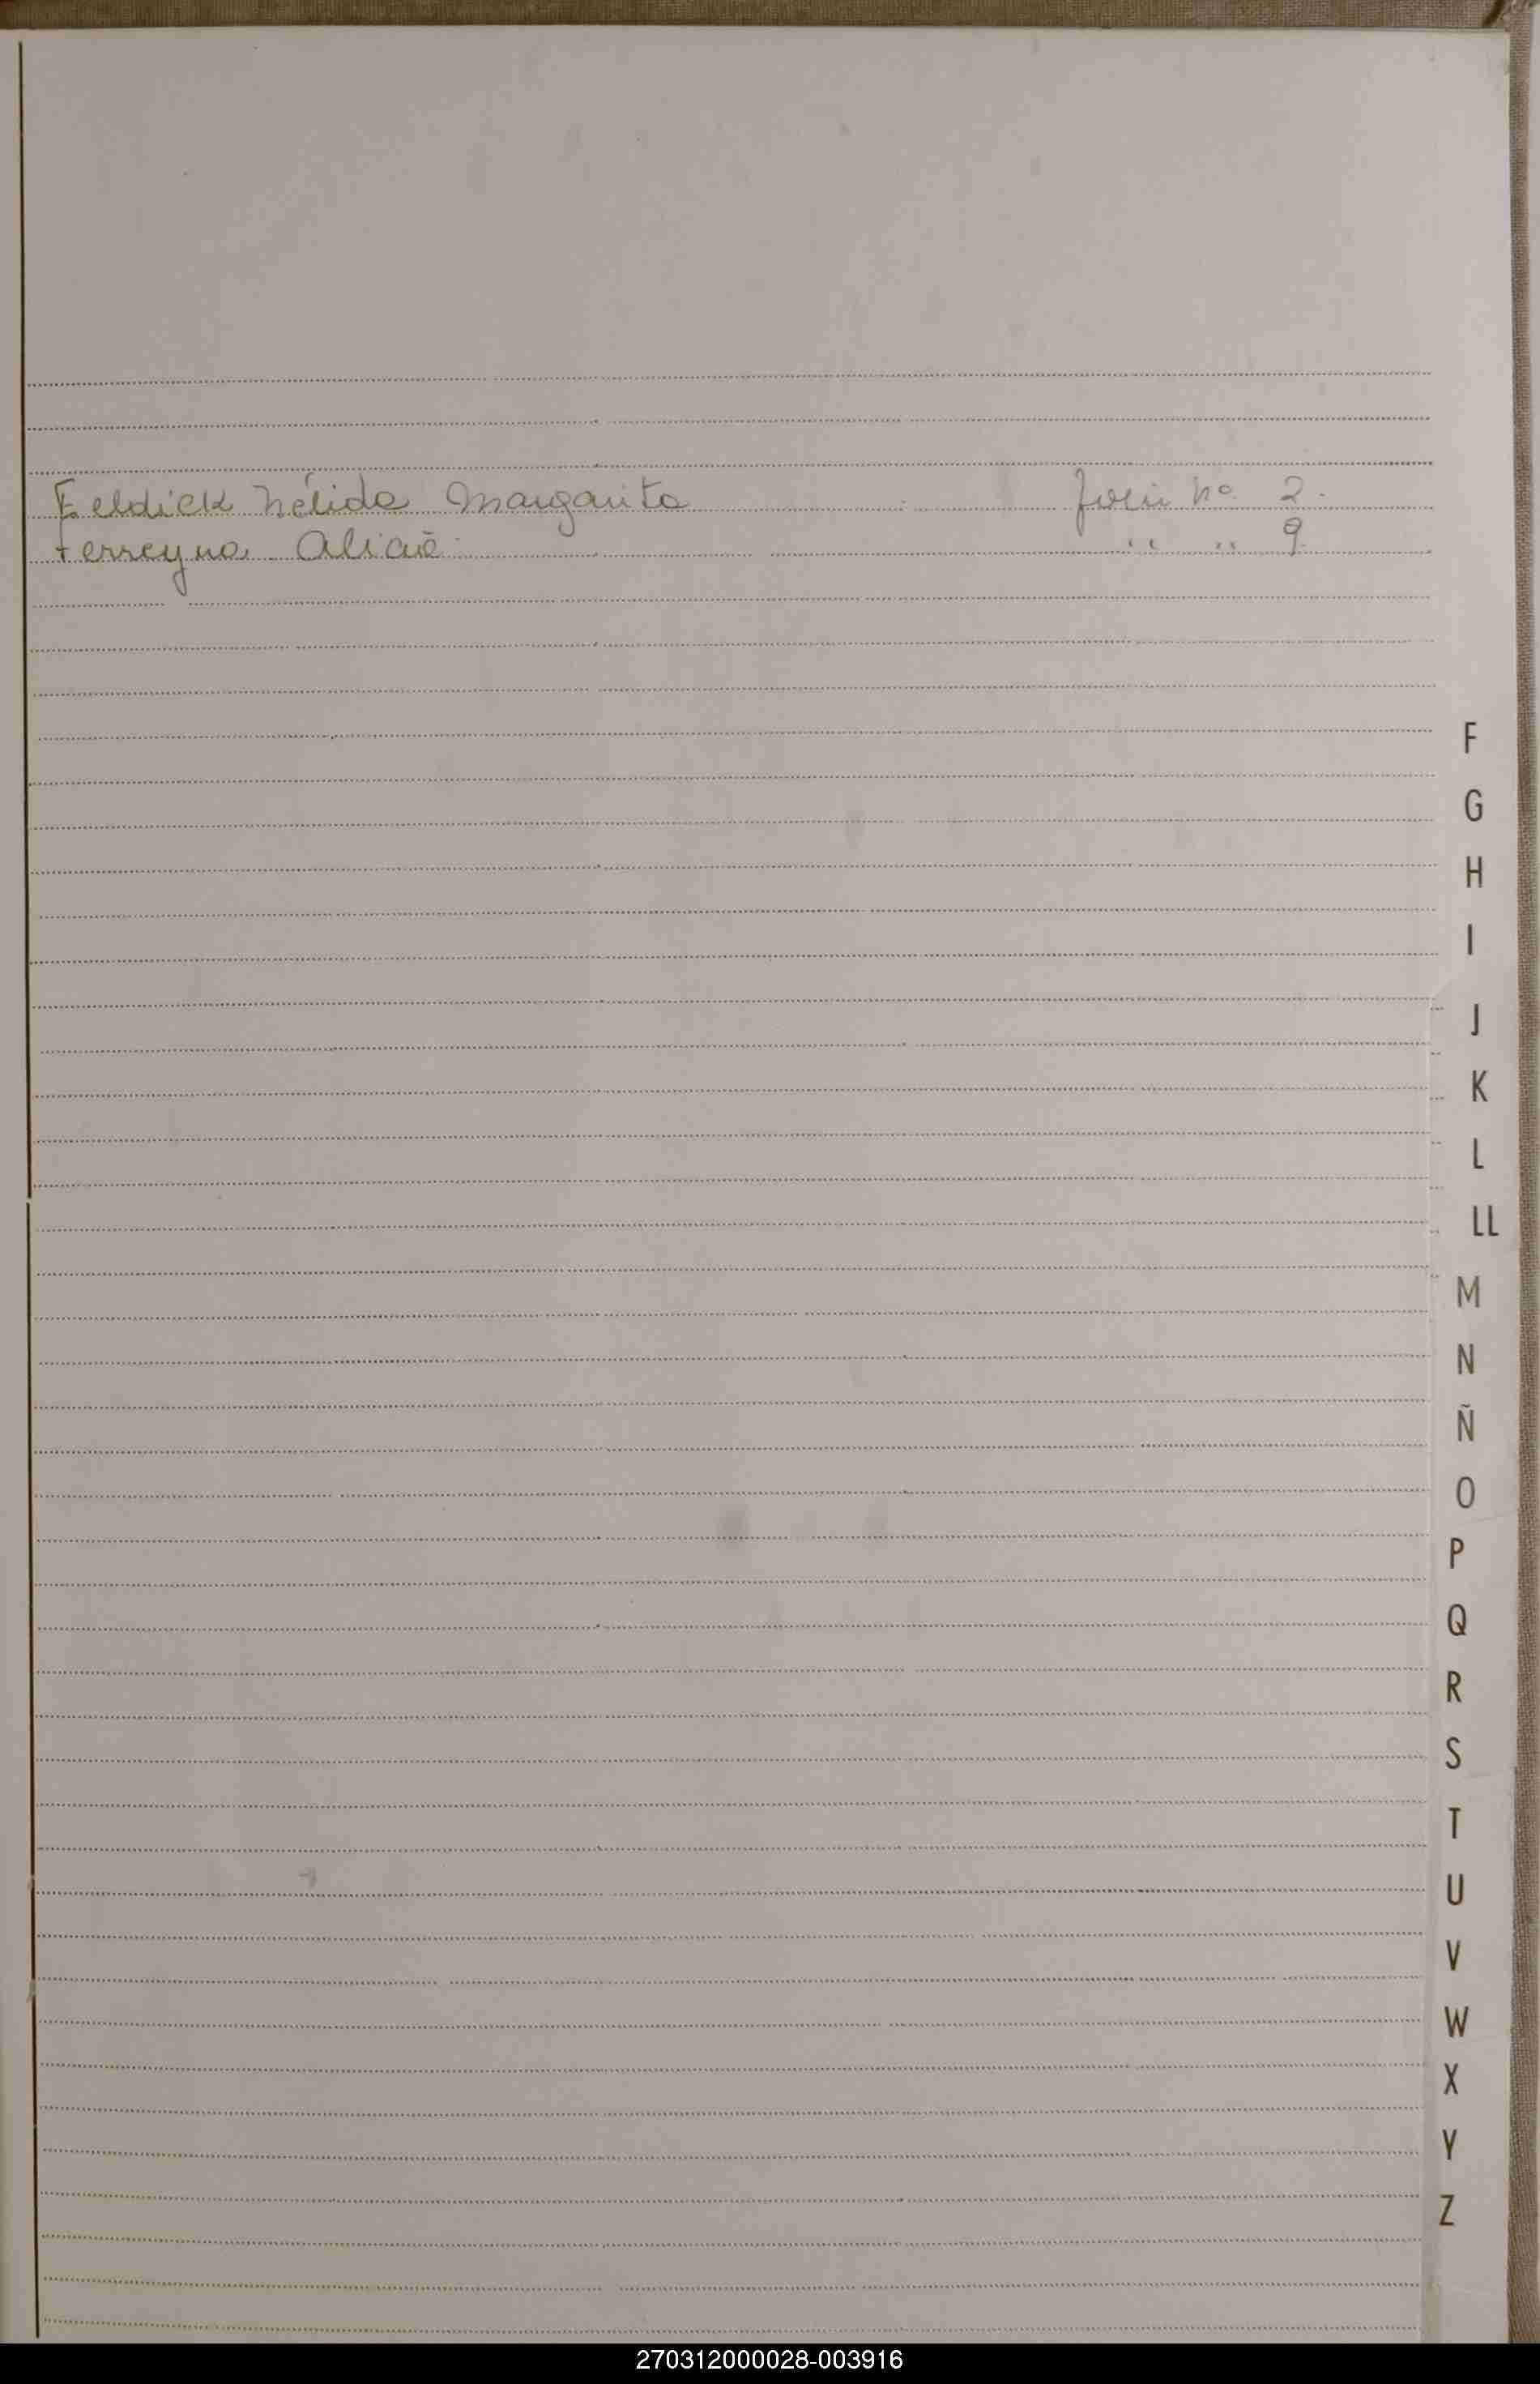 Feldick Nélida Margarita Folio No. 2.
Ferreyra Alicia " " 9.
F
G
H
I
J
K
L
LL
M
N
Ñ
O
P
Q
R
S
T
U
V
W
X
Y
Z
270312000028-003916